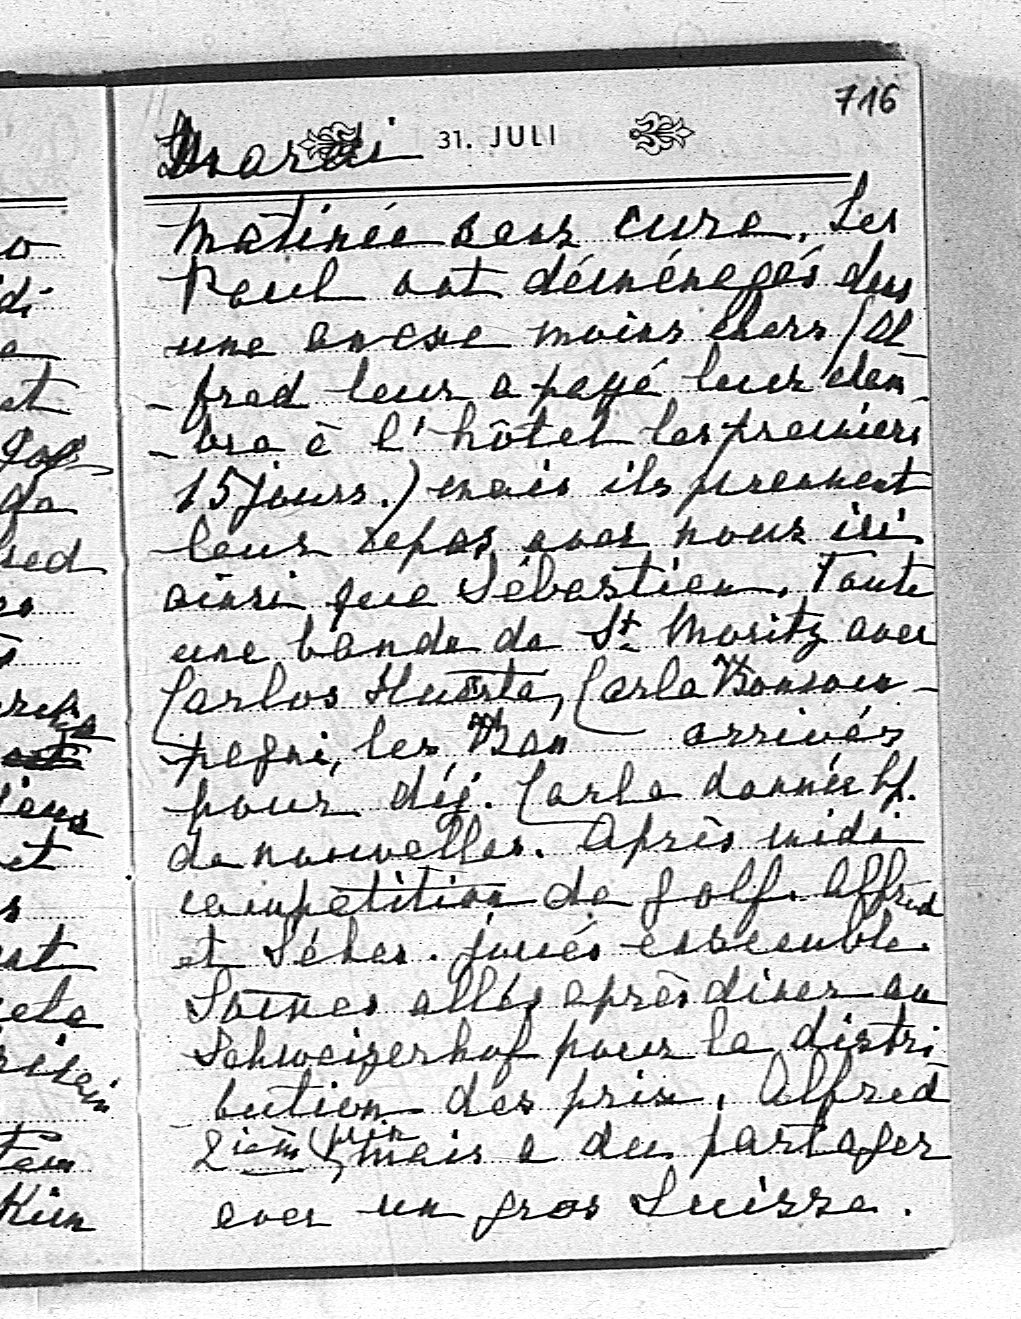 716
Mardi 31. JULI
Matinée sans cure. Les
Paul ont déménagés dans
une anexe moins chers (Al
-fred leur a payé leur cham-
-bre à l'hôtel les premiers
15 jours.) mais ils prennent
leurs repas avec nous ici
ainsi que Sébastien. Toute
une bande de St Moritz avec
Carlos Huarte, Carla
les arrivés
pour déj. Carla donnée bp.
de nouvelles. Après midi
compétition de golf. Alfred
et Sébas. joués ensemble
Sommes allés après diner au
Schweizerhof pour la distri
bution des prix. Alfred
2ièm prix, mais a du partager
avec un gros Suisse.